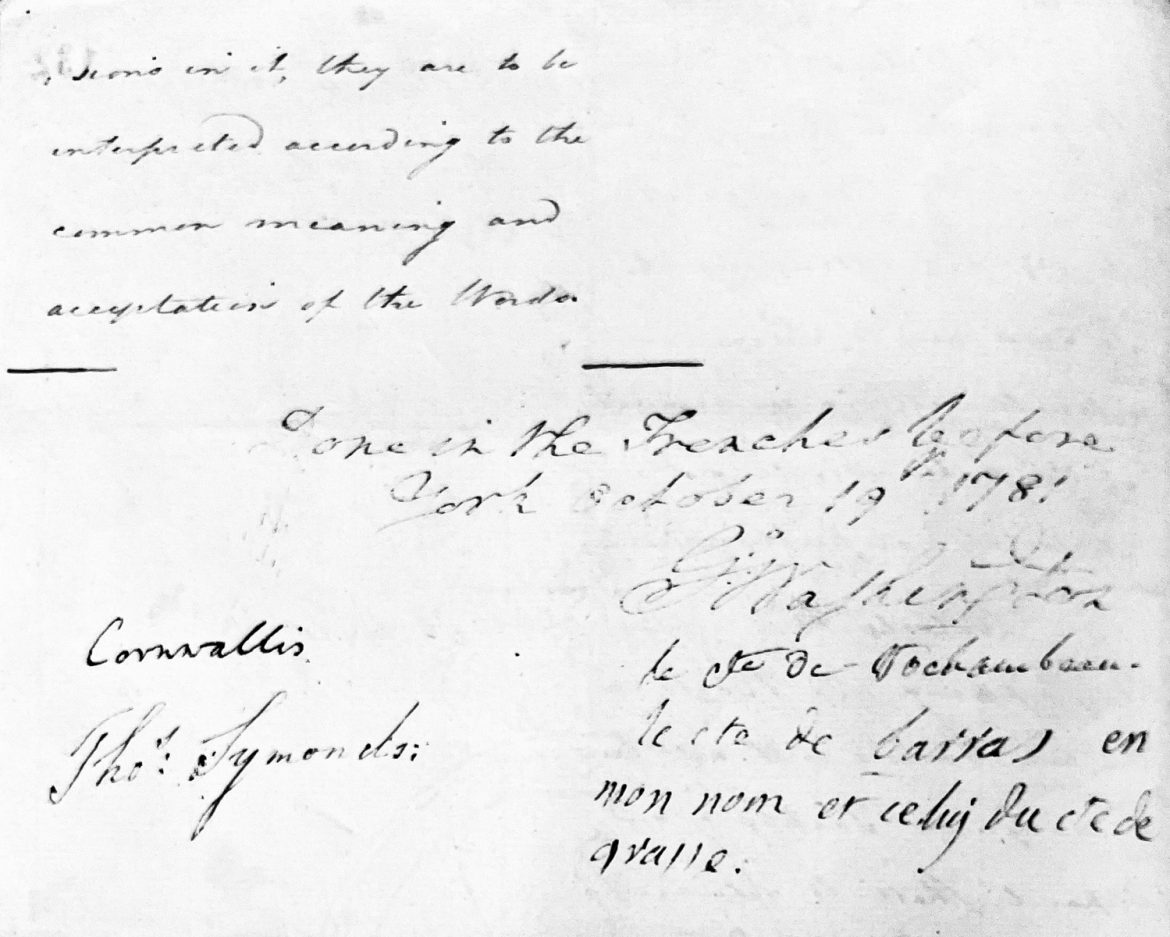 sions in it, they are to be
interpreted according to the
common meaning and
acceptation of the Words
Done in the Trenches before
York October 19th 1781
G:o Washington
Cornwallis
le cte de Rochambeau.
Thos: Symonds:
le cte de barras en
mon nom et celuy du cte de
grasse.